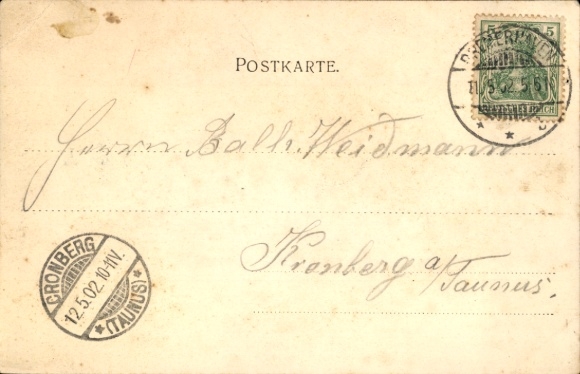 5 5
BREMERHAVEN
11.5.02.5-6
POSTKARTE.
Herrn Balth. Weidmann
Kronberg a/Taunus.
CRONBERG
12.5.02.10-11V.
* (TAUNUS) *